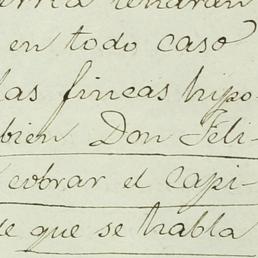 tendrán
en todo caso
las fincas hipo-
bien Don Feli-
cobrar el capi-
de que se habla